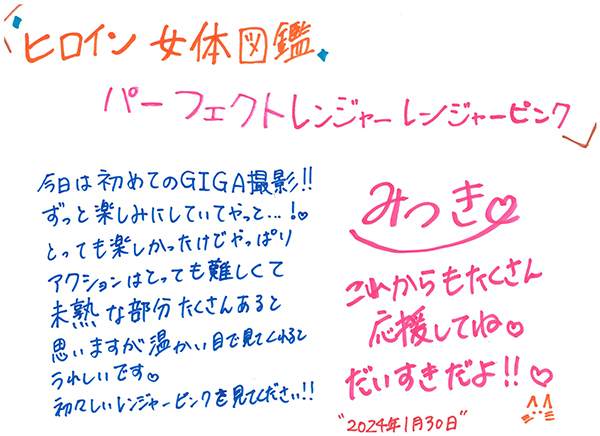 「ヒロイン女体図鑑
パーフェクトレンジャーレンジャーピンク」
今日は初めてのGIGA撮影!!
ずっと楽しみにしていてやっと...!♡
とっても楽しかったけどやっぱり
アクションはとっても難しくて
未熟な部分たくさんあると
思いますが温かい目で見てくれると
うれしいです♡
初々しいレンジャーピンクを見てください!!
みつき♡
これからもたくさん
応援してね♡
だいすきだよ!!♡
"2024年1月30日"